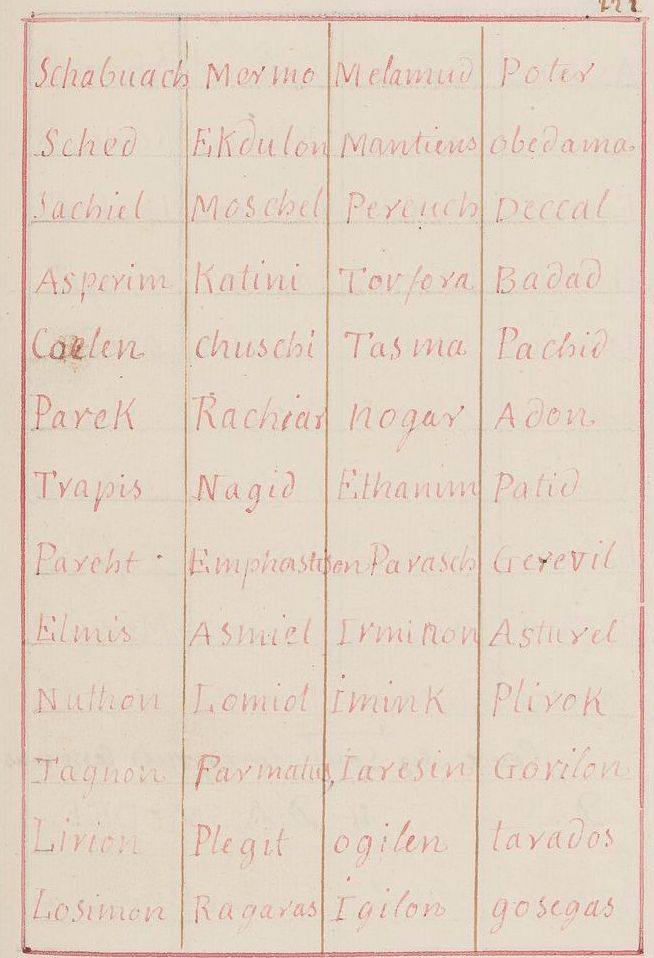 Schabuach Mermo Melamud Poter
Sched Ekdulon Mantiens obedama.
Sachiel Moschel Pereuch Deccal
Asperim Katini Torfora Badad
Coelen chuschi Tasma Pachid
Parek Rachiar nogar Adon
Trapis Nagid Ethanim Patid
Pareht Emphastison Parasch Gerevil
Elmis Asmiel Irminon Asturel
Nuthon Lomiol imink Plirok
Tagnon Parmatus, Iaresin Gorilon
Lirion Plegit ogilen tarados
Losimon Ragaras igilon gosegas